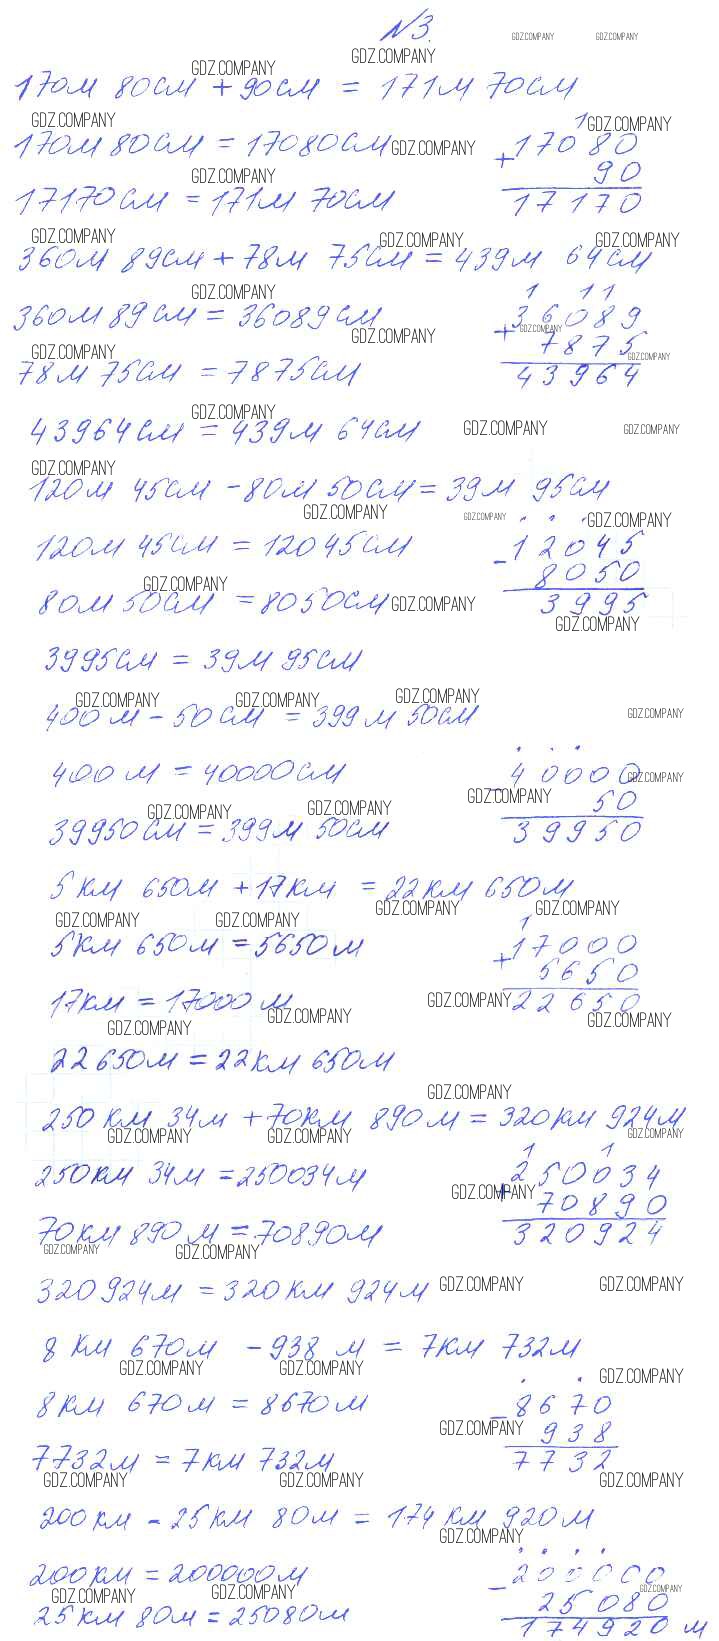 №3.
170м 80см + 90см = 171м 70см
170м 80см = 17080см
17170см = 171м 70см
1
+ 17080
90
17170
360м 89см + 78м 75см = 439м 64см
360м 89см = 36089см
78м 75см = 7875см
1 11
+ 36089
7875
43964
43964см = 439м 64см
120м 45см - 80м 50см = 39м 95см
120м 45см = 12045см
80м 50см = 8050см
- 12045
8050
3995
3995см = 39м 95см
400м - 50см = 399м 50см
400м = 40000см
39950см = 399м 50см
- 40000
50
39950
5км 650м + 17км = 22км 650м
5км 650м = 5650м
17км = 17000м
1
+ 17000
5650
22650
22650м = 22км 650м
250км 34м + 70км 890м = 320км 924м
250км 34м = 250034м
70км 890м = 70890м
1 1
+ 250034
70890
320924
320924м = 320км 924м
8км 670м - 938м = 7км 732м
8км 670м = 8670м
7732м = 7км 732м
- 8670
938
7732
200км - 25км 80м = 174км 920м
200км = 200000м
25км 80м = 25080м
- 200000
25080
174920м
GDZ.COMPANY